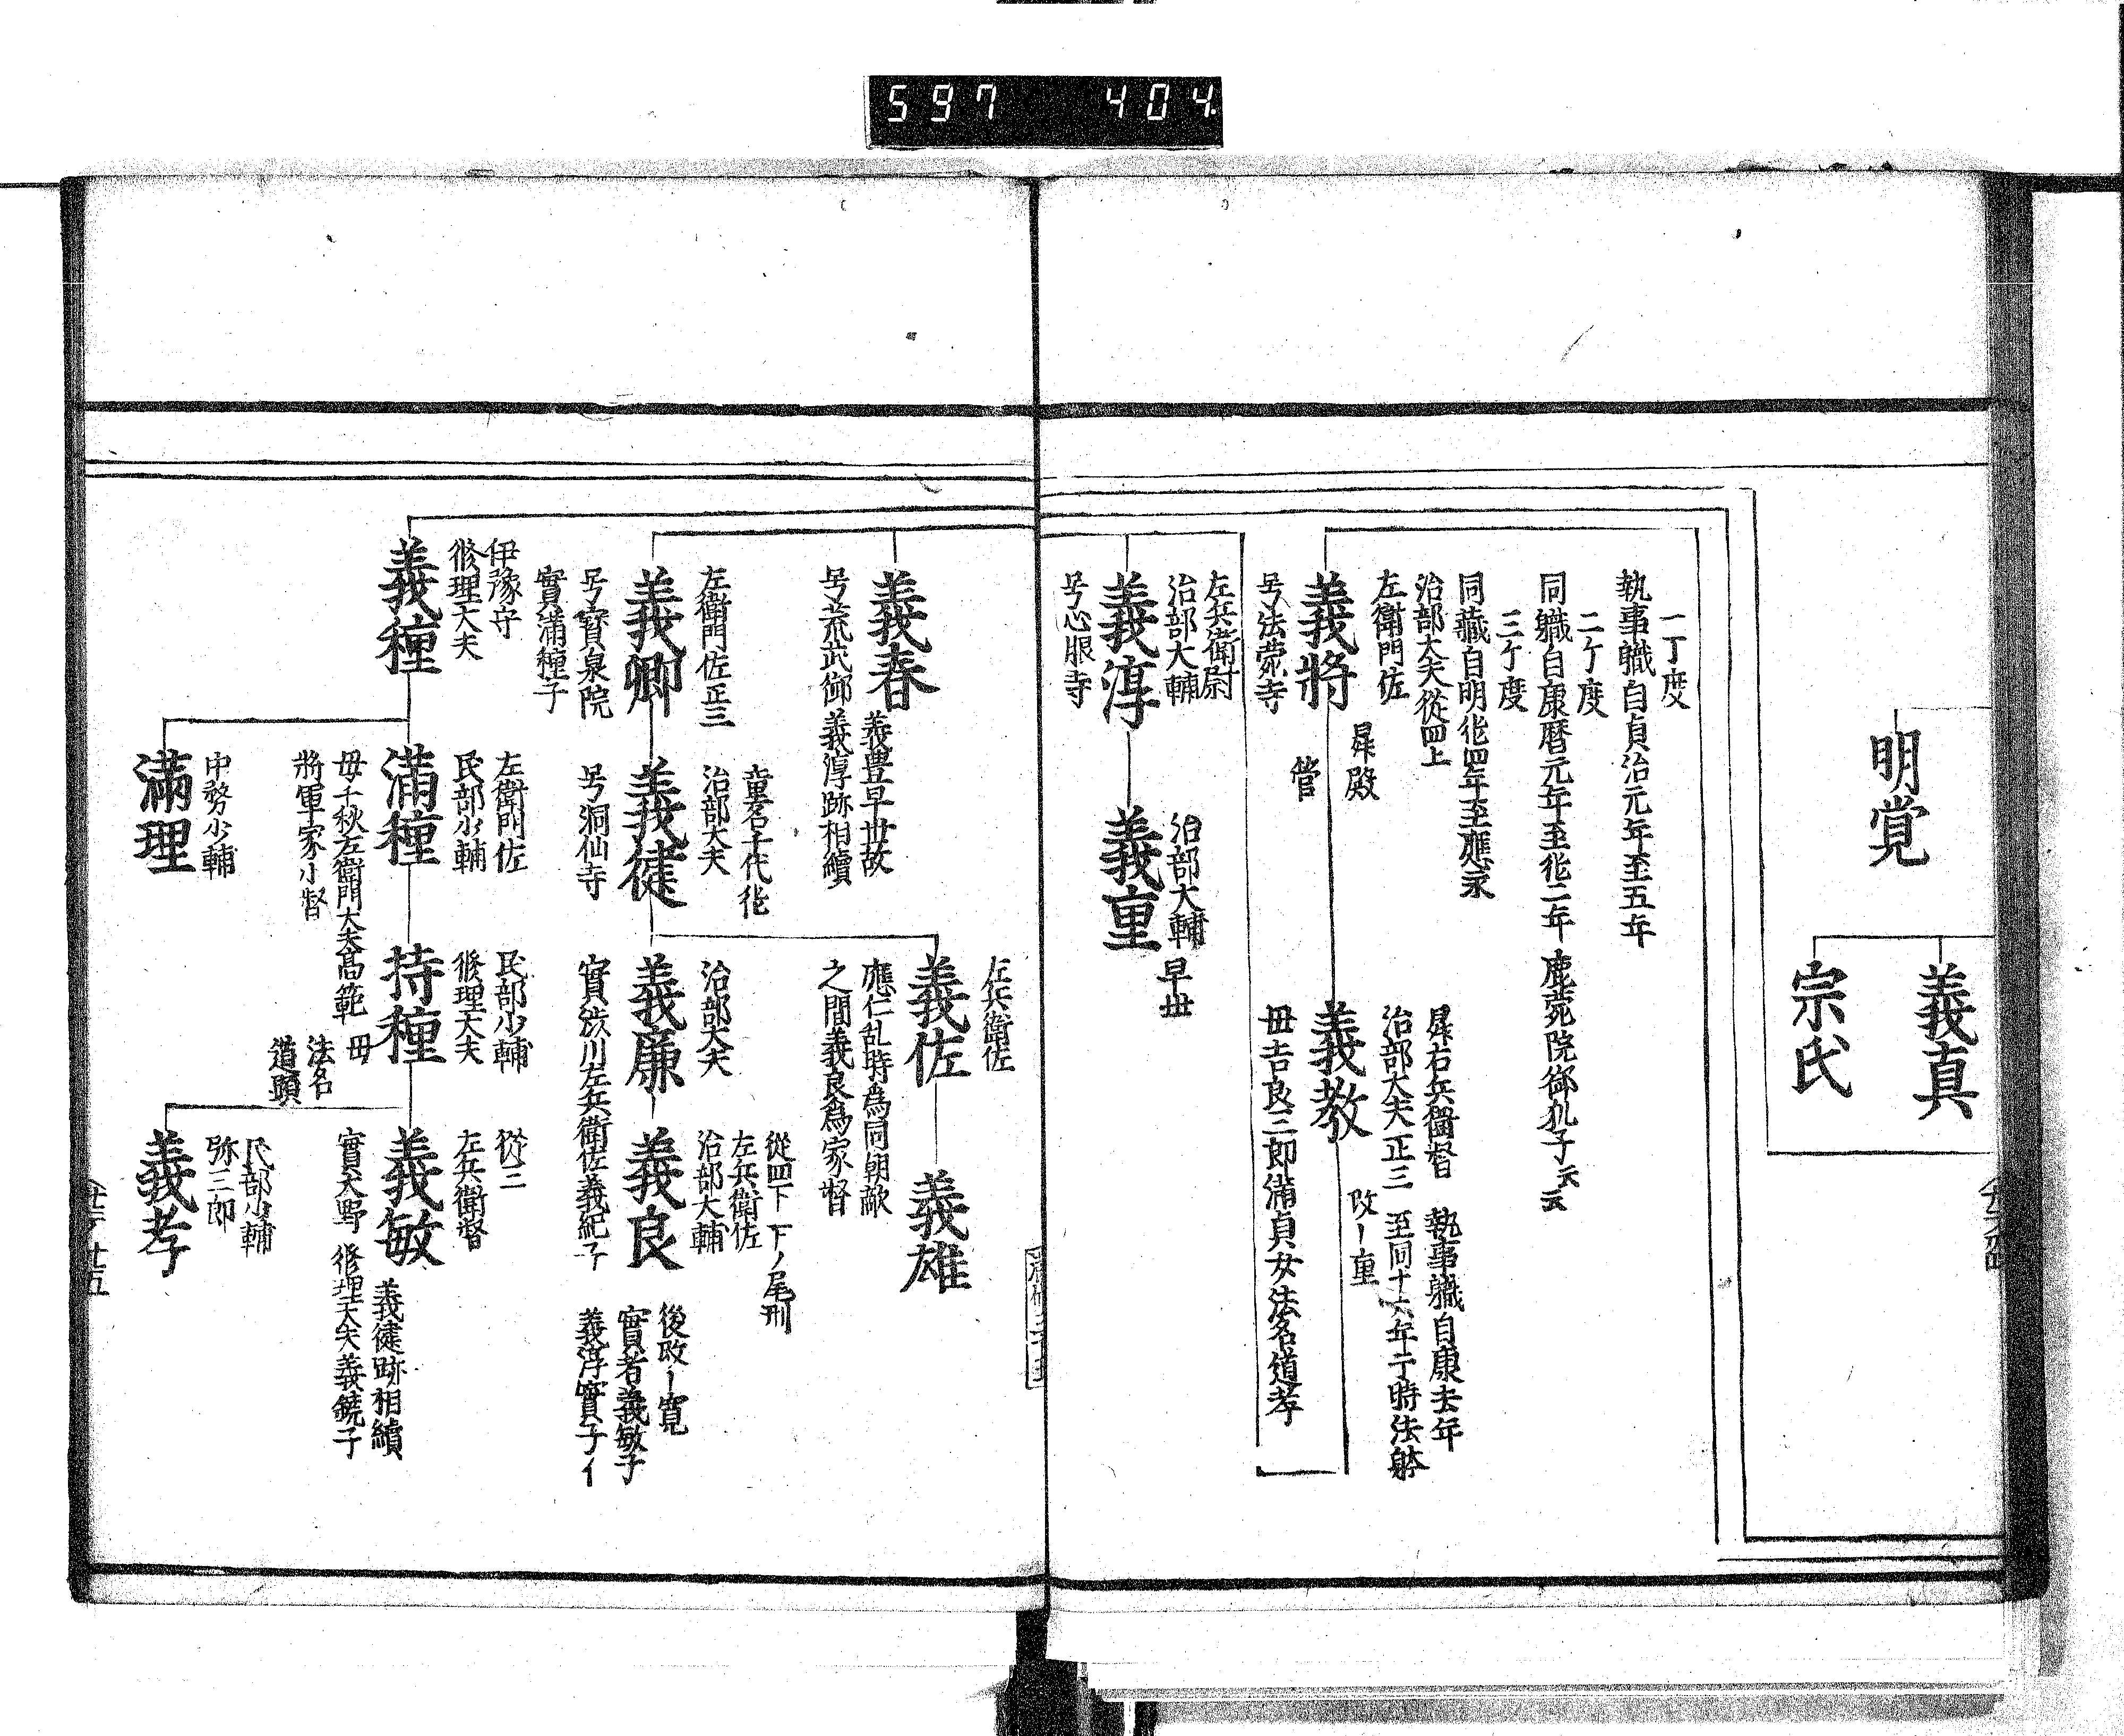 597 404
明覚
義真
宗氏
一丁度
執事職自貞治元年至五年
二ケ度
同職自康暦元年至化二年 鹿苑院御乳子云云
三ケ度
同職自明化四年至應永
治部大夫從四上
左衛門佐
義將
号法苑寺
管
義教
治部大夫正三 至同十六年于時法躰
執事職自康去年
改ー重
毋吉良三郎満貞女法名道孝
左兵衛尉
治部大輔
義淳
号心眼寺
治部大輔 早世
義重
義春
義豊早世故
号荒武御義淳跡相續
左衛門佐正三
義卿
号寳泉院
實満種子
童名千代化
治部大夫
義健
号洞仙寺
左兵衛佐
義佐
應仁乱時為同朝敵
之間義良為家督
義雄
治部大夫
義廉
實渋川左兵衛佐義紀子
從四下 下ノ尾刑
左兵衛佐
治部大輔
義良
後改ー寛
實者義敏子
義淳實子イ
伊豫守
修理大夫
義種
左衛門佐
民部少輔
満種
毋千秋左衛門大夫髙範
將軍家小督
中務少輔
満理
民部少輔
修理大夫
持種
毋
法名
道顕
從三
左兵衛督
義敏
義健跡相續
實大野 修理大夫義鏡子
民部少輔
弥三郎
義孝